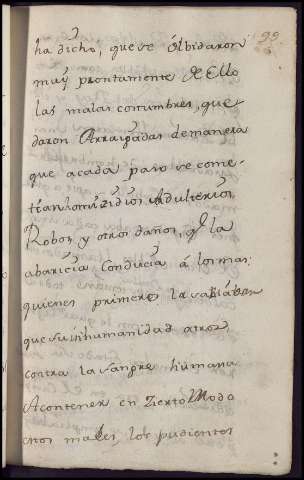 99
ha dicho, que se olbidaron
muy prontamente de Ello
las malas costumbres, que-
daron Arraigadas demanera
que acada paso se come-
tian homizidios, Adulterios,
Robos, y otros daños, q.e la
abaricia Conducia á los mas;
quienes primero la
que su inhumanidad atroz
contra la sangre humana
Acontener en Zierto Modo
estos males, los pudientes